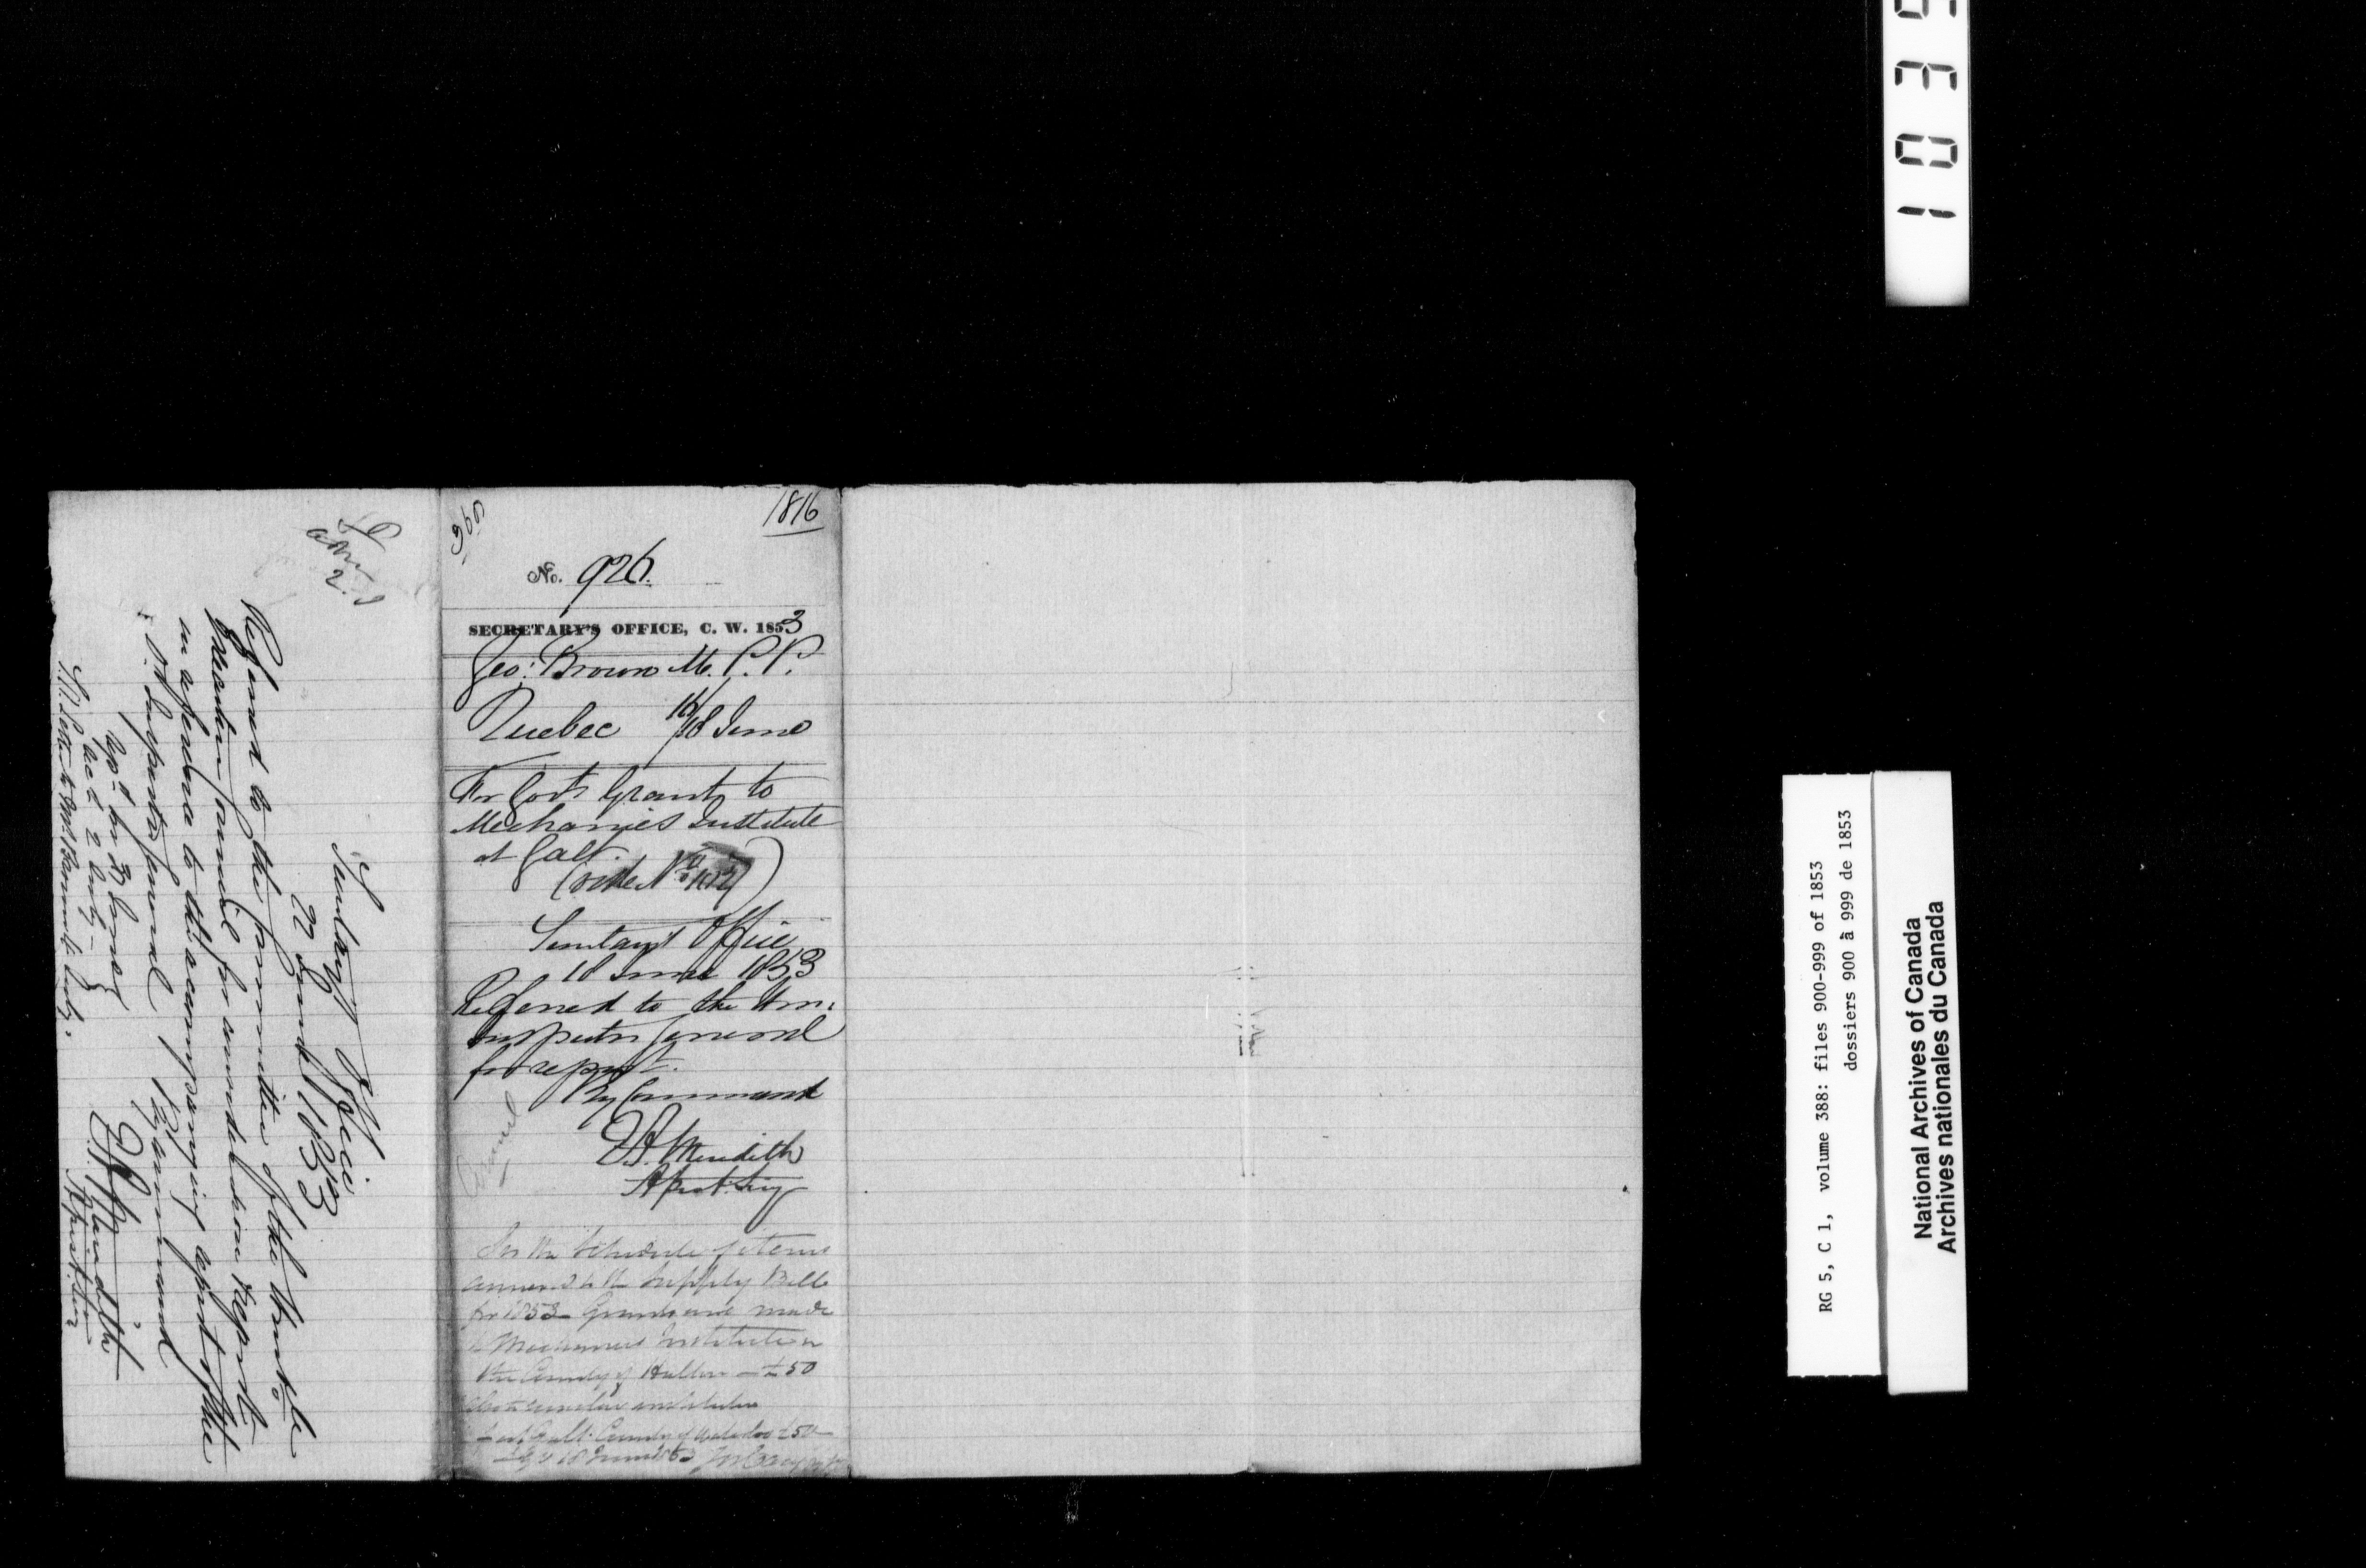 1816
960
No. 926.
SECRETARY'S OFFICE, C. W. 1853
Geo: Brown M. P. P.
Quebec 16/18 June
For Govt Grant to
Mechanics Institute
at Galt.
(vide No
Secretary's Office
18 June 1853
Referred to the Hon:
Inspector General
for report.
By Command
E.A. Meredith
Asst. Secy
In the Schedule of items
annexed to the Supply Bill
for 1853 Grants are made
Mechanics Institute in
the County of Halton - £50
similar institution
at Galt County of Waterloo £50
18 June 1853
Secretary's Office
22 June 1853
Referred to the Committee of the Honble
Executive Council for consideration & report
in reference to the accompanying report of the
Inspector General
By Command
E.A. Meredith
Asst. Secy
1035
RG 5, C 1, volume 388: files 900-999 of 1853
dossiers 900 à 999 de 1853
National Archives of Canada
Archives nationales du Canada